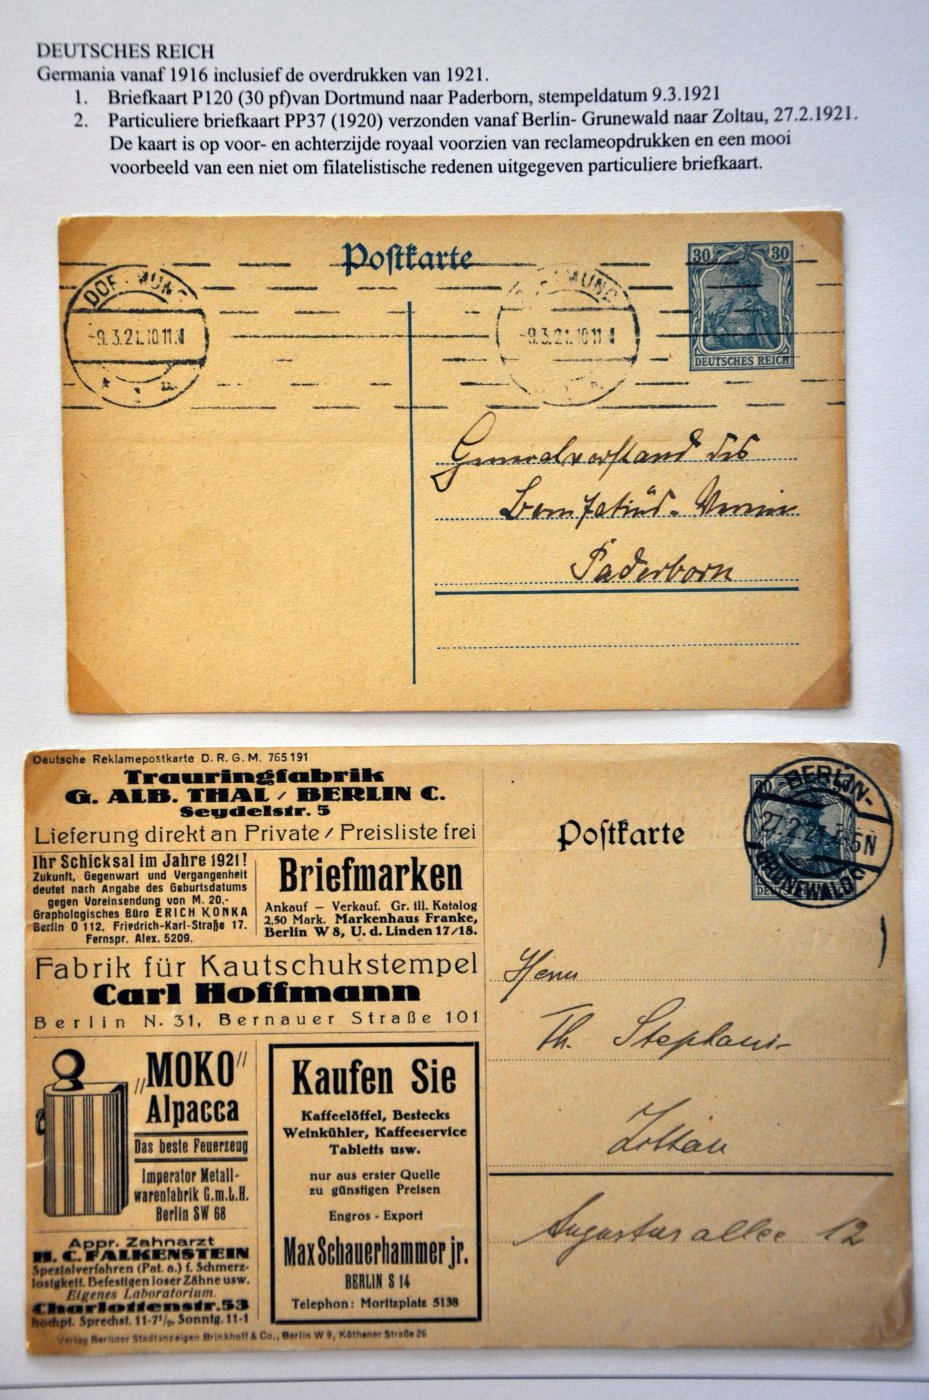 DEUTSCHES REICH
Germania vanaf 1916 inclusief de overdrukken van 1921.
1. Briefkaart P120 (30 pf)van Dortmund naar Paderborn, stempeldatum 9.3.1921
2. Particuliere briefkaart PP37 (1920) verzonden vanaf Berlin- Grunewald naar Zoltau, 27.2.1921.
De kaart is op voor- en achterzijde royaal voorzien van reclameopdrukken en een mooi
voorbeeld van een niet om filatelistische redenen uitgegeven particuliere briefkaart.
Postkarte
30 30
DEUTSCHES REICH
DORTMUND
-9.3.21.10 11
DORTMUND
-9.3.21.10 11
Generalvorstand des
Bonifatius-Verein
Paderborn
Deutsche Reklamepostkarte D. R. G. M. 765191
Trauringfabrik
G. ALB. THAL / BERLIN C.
Seydelstr. 5
Lieferung direkt an Private / Preisliste frei
Ihr Schicksal im Jahre 1921!
Zukunft, Gegenwart und Vergangenheit
deutet nach Angabe des Geburtsdatums
gegen Voreinsendung von M. 20.-
Graphologisches Büro ERICH KONKA
Berlin O 112, Friedrich-Karl-Straße 17.
Fernspr. Alex. 5209.
Briefmarken
Ankauf – Verkauf. Gr. ill. Katalog
2,50 Mark. Markenhaus Franke,
Berlin W 8, U. d. Linden 17/18.
Fabrik für Kautschukstempel
Carl Hoffmann
Berlin N. 31, Bernauer Straße 101
„MOKO”
Alpacca
Das beste Feuerzeug
Imperator Metall-
warenfabrik G.m.b.H.
Berlin SW 68
Kaufen Sie
Kaffeelöffel, Bestecks
Weinkühler, Kaffeeservice
Tabletts usw.
nur aus erster Quelle
zu günstigen Preisen
Engros - Export
Max Schauerhammer jr.
BERLIN S 14
Telephon: Moritzplatz 5138
Appr. Zahnarzt
H. C. FALKENSTEIN
Spezialverfahren (Pat. a.) f. Schmerz-
losigkeit. Befestigen loser Zähne usw.
Eigenes Laboratorium.
Charlottenstr. 53
hochpt. Sprechst. 11-7½, Sonntg. 11-1
Verlag Berliner Stadtanzeigen Brinkhoff & Co., Berlin W 9, Köthener Straße 26
Postkarte
30
BERLIN-
27.2.21. 4-5N
GRUNEWALD
Herrn
Th. Stephani
Zoltau
Augustusallee 12